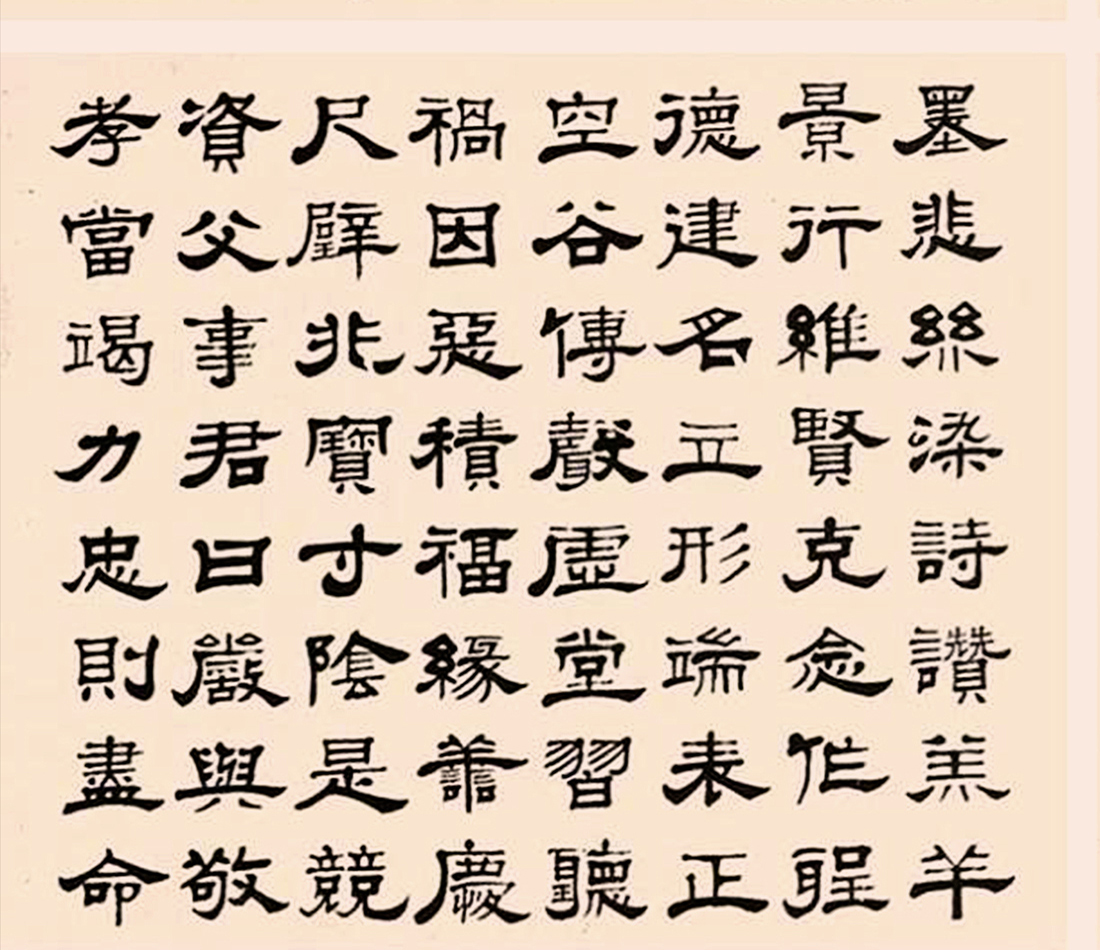 墨悲絲染詩讚羔羊
景行維賢克念作聖
德建名立形端表正
空谷傳聲虛堂習聽
禍因惡積福緣善慶
尺璧非寶寸陰是競
資父事君曰嚴與敬
孝當竭力忠則盡命